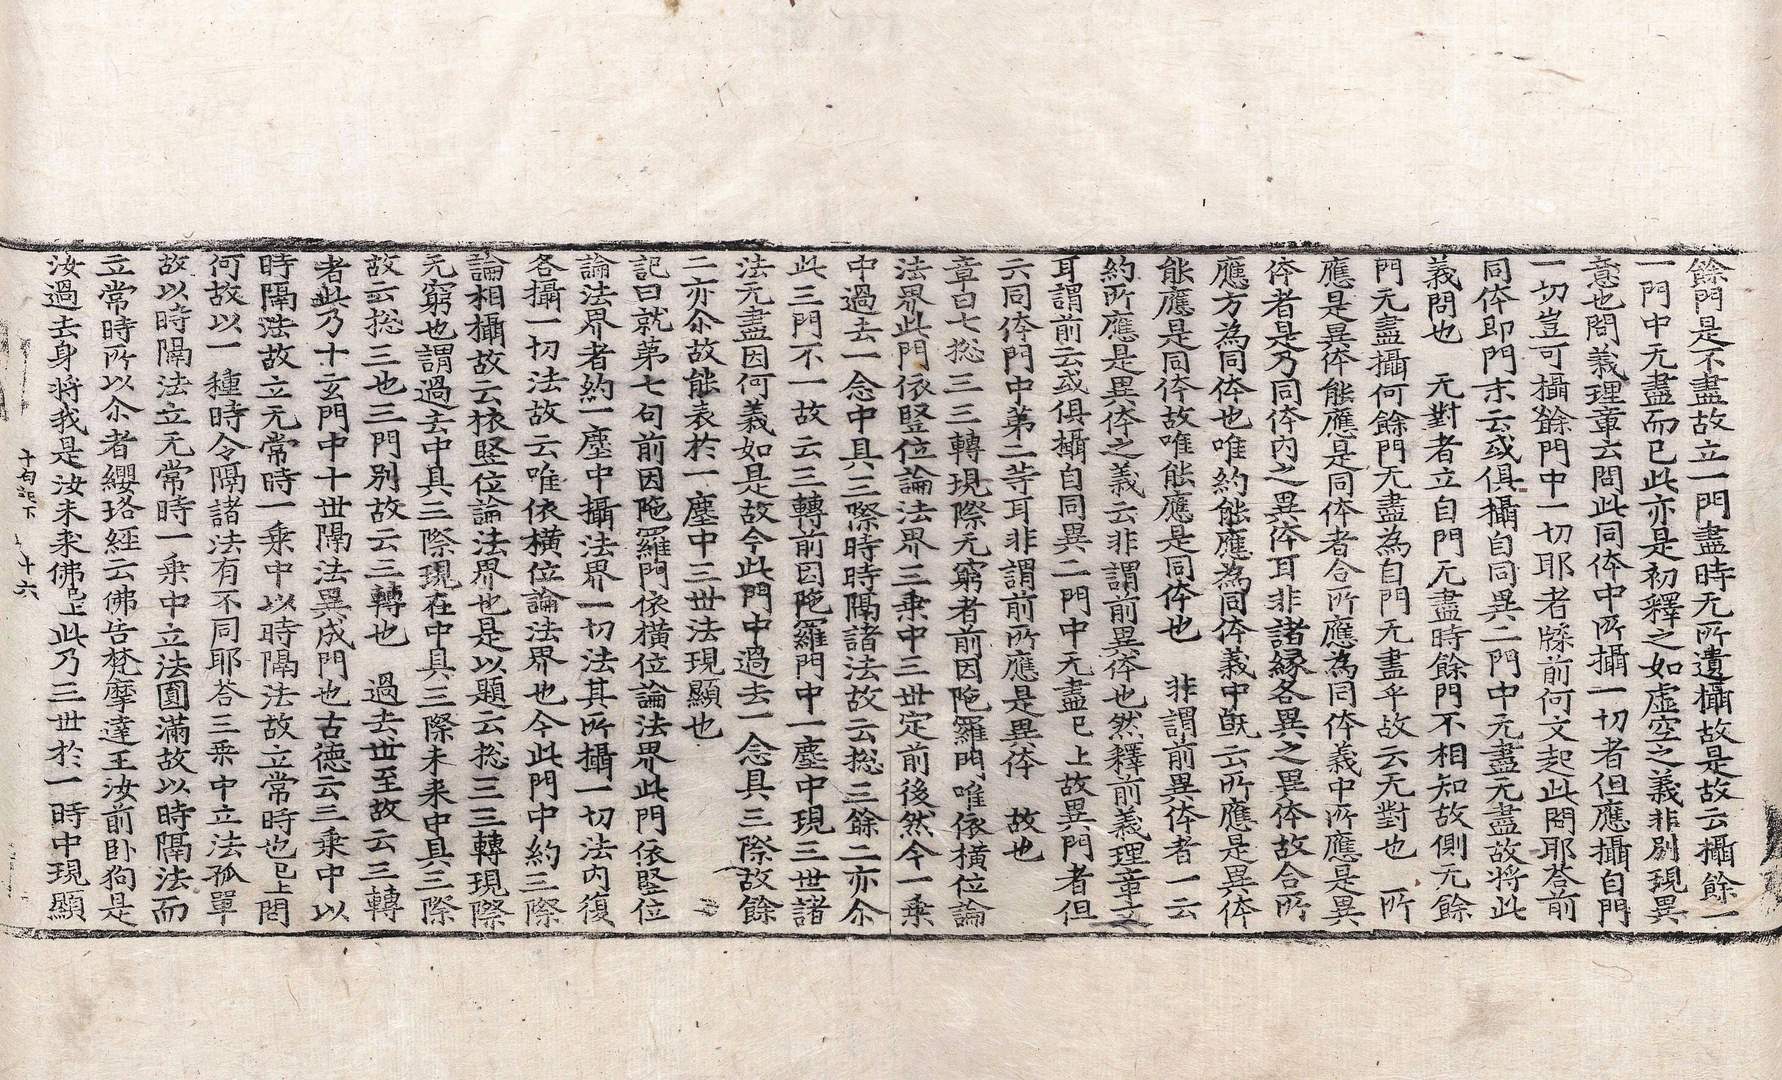 餘門是不盡故立一門盡時无所遺攝故是故云攝餘一
一門中无盡而已此亦是初釋之如虛空之義非別現異
意也問義理章云問此同体中所攝一切者但應攝自門
一切豈可攝餘門中一切耶者牒前何文起此問耶荅前
同体即門末云或俱攝自同異二門中无盡无盡故將此
義問也 无對者立自門无盡時餘門不相知故側无餘
門无盡攝何餘門无盡為自門无盡乎故云无對也 所
應是異体能應是同体者合所應為同体義中所應是異
体者是乃同体内之異体耳非諸緣各異之異体故合所
應方為同体也唯約能應為同体義中旣云所應是異体
能應是同体故唯能應是同体也 非謂前異体者一云
約所應是異体之義云非謂前異体也然釋前義理章文
耳謂前云或俱攝自同異二門中无盡已上故異門者但
六同体門中第二等耳非謂前所應是異体 故也
章曰七捴三三轉現際无窮者前因陁羅門唯依橫位論
法界此門依竪位論法界三乘中三世定前後然今一乘
中過去一念中具三際時時隔諸法故云捴三餘二亦尒
此三門不一故云三轉前因陁羅門中一塵中現三世諸
法无盡因何義如是故今此門中過去一念具三際故餘
二亦尒故能表於一塵中三世法現顯也
記曰就第七句前因陁羅門依橫位論法界此門依竪位
論法界者約一塵中攝法界一切法其所攝一切法内復
各攝一切法故云唯依橫位論法界也今此門中約三際
論相攝故云依竪位論法界也是以題云捴三三轉現際
无窮也謂過去中具三際現在中具三際未来中具三際
故云捴三也三門別故云三轉也 過去世至故云三轉
者此乃十玄門中十世隔法異成門也古德云三乘中以
時隔法故立无常時一乘中以時隔法故立常時也已上問
何故以一種時令隔諸法有不同耶荅三乘中立法孤單
故以時隔法立无常時一乘中立法圓滿故以時隔法而
立常時所以尒者纓珞經云佛告梵摩達王汝前卧狗是
汝過去身將我是汝未来佛已上此乃三世於一時中現顯
十句記下 十六